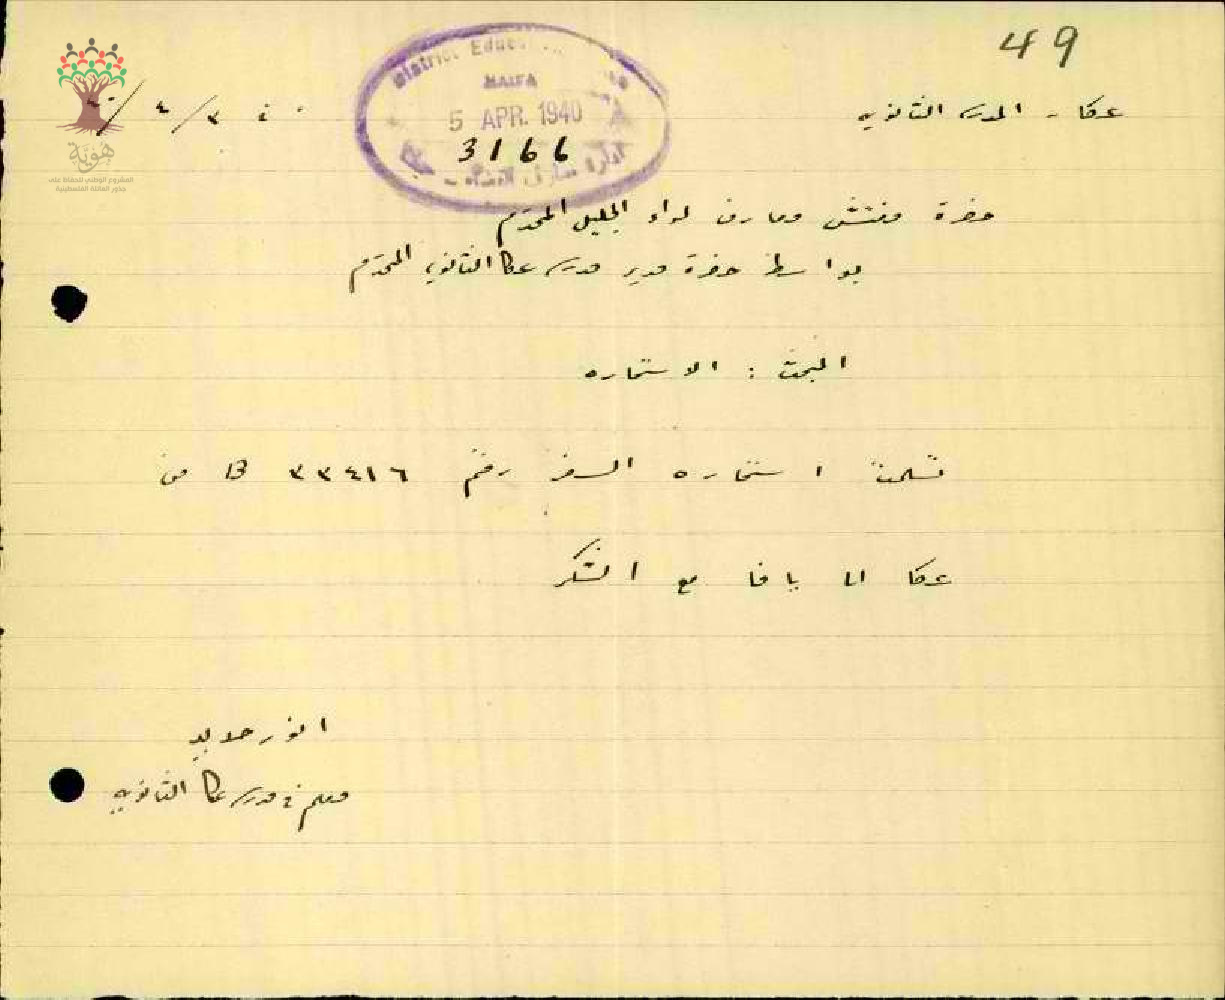 49
عكا - المدرسة الثانوية
في ٣ / ٤ / ٤٠
District Educ
HAIFA
5 APR. 1940
3166
ادارة معارف
هوية
المشروع الوطني للحفاظ على
جذور العائلة الفلسطينية
حضرة مفتش معارف لواء الجليل المحترم
بواسطة حضرة مدير مدرسة عكا الثانوية المحترم
المبحث : الاستماره
تسلمت استماره السفر رقم ٣٣٤١٦ B من
عكا الى يافا مع الشكر
انور حدايد
معلم في مدرسة عكا الثانوية